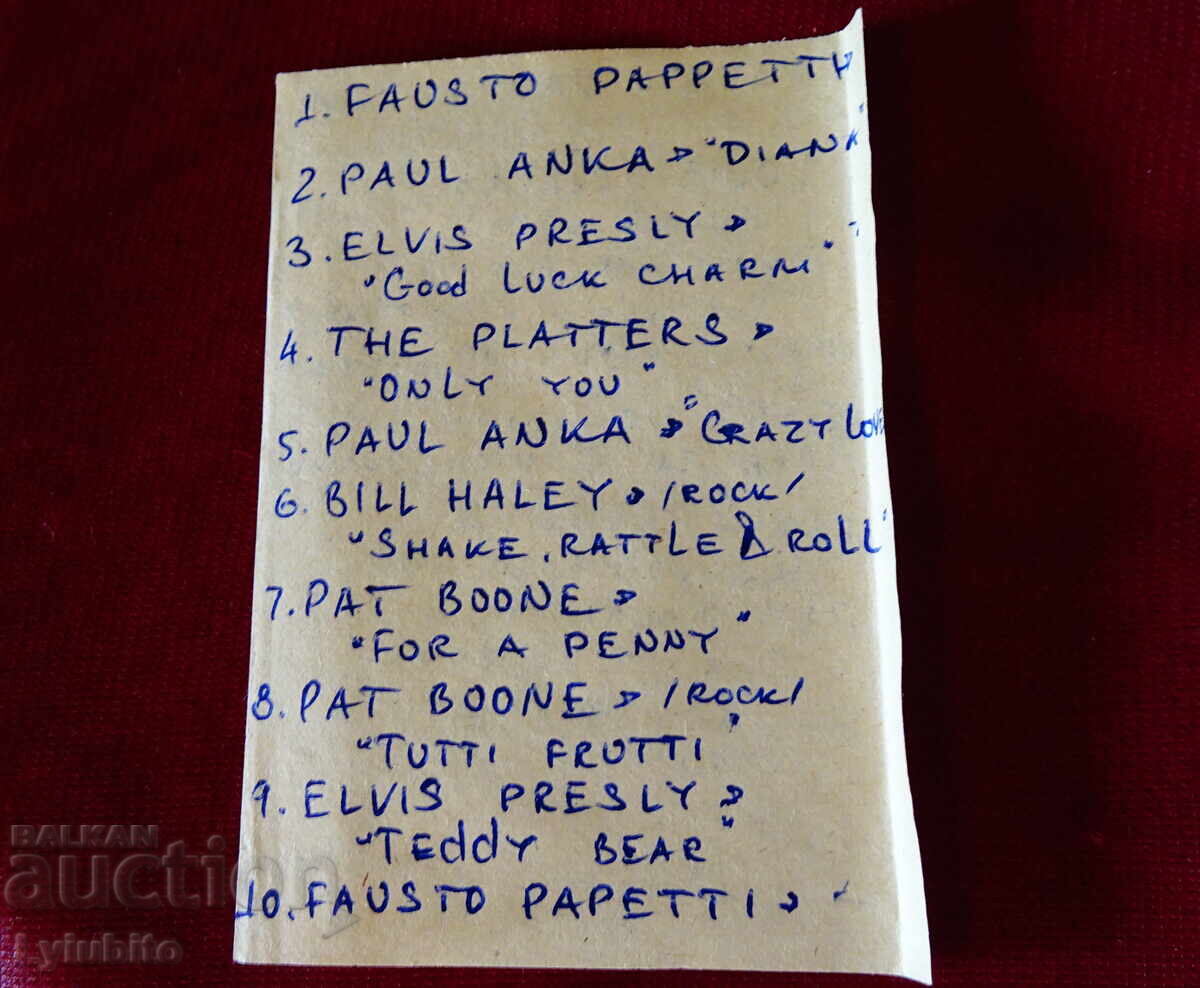 1. FAUSTO PAPPETTI
2. PAUL ANKA → "DIANA"
3. ELVIS PRESLY →
"Good LUCK CHARM"
4. THE PLATTERS →
"ONLY YOU"
5. PAUL ANKA → "CRAZY LOVE
6. BILL HALEY → /ROCK/
"SHAKE, RATTLE & ROLL"
7. PAT BOONE →
"FOR A PENNY"
8. PAT BOONE → /ROCK/
"TUTTI FRUTTI"
9. ELVIS PRESLY →
"TEddy BEAR"
10. FAUSTO PAPETTI →
BALKAN
auction
Lyiubito